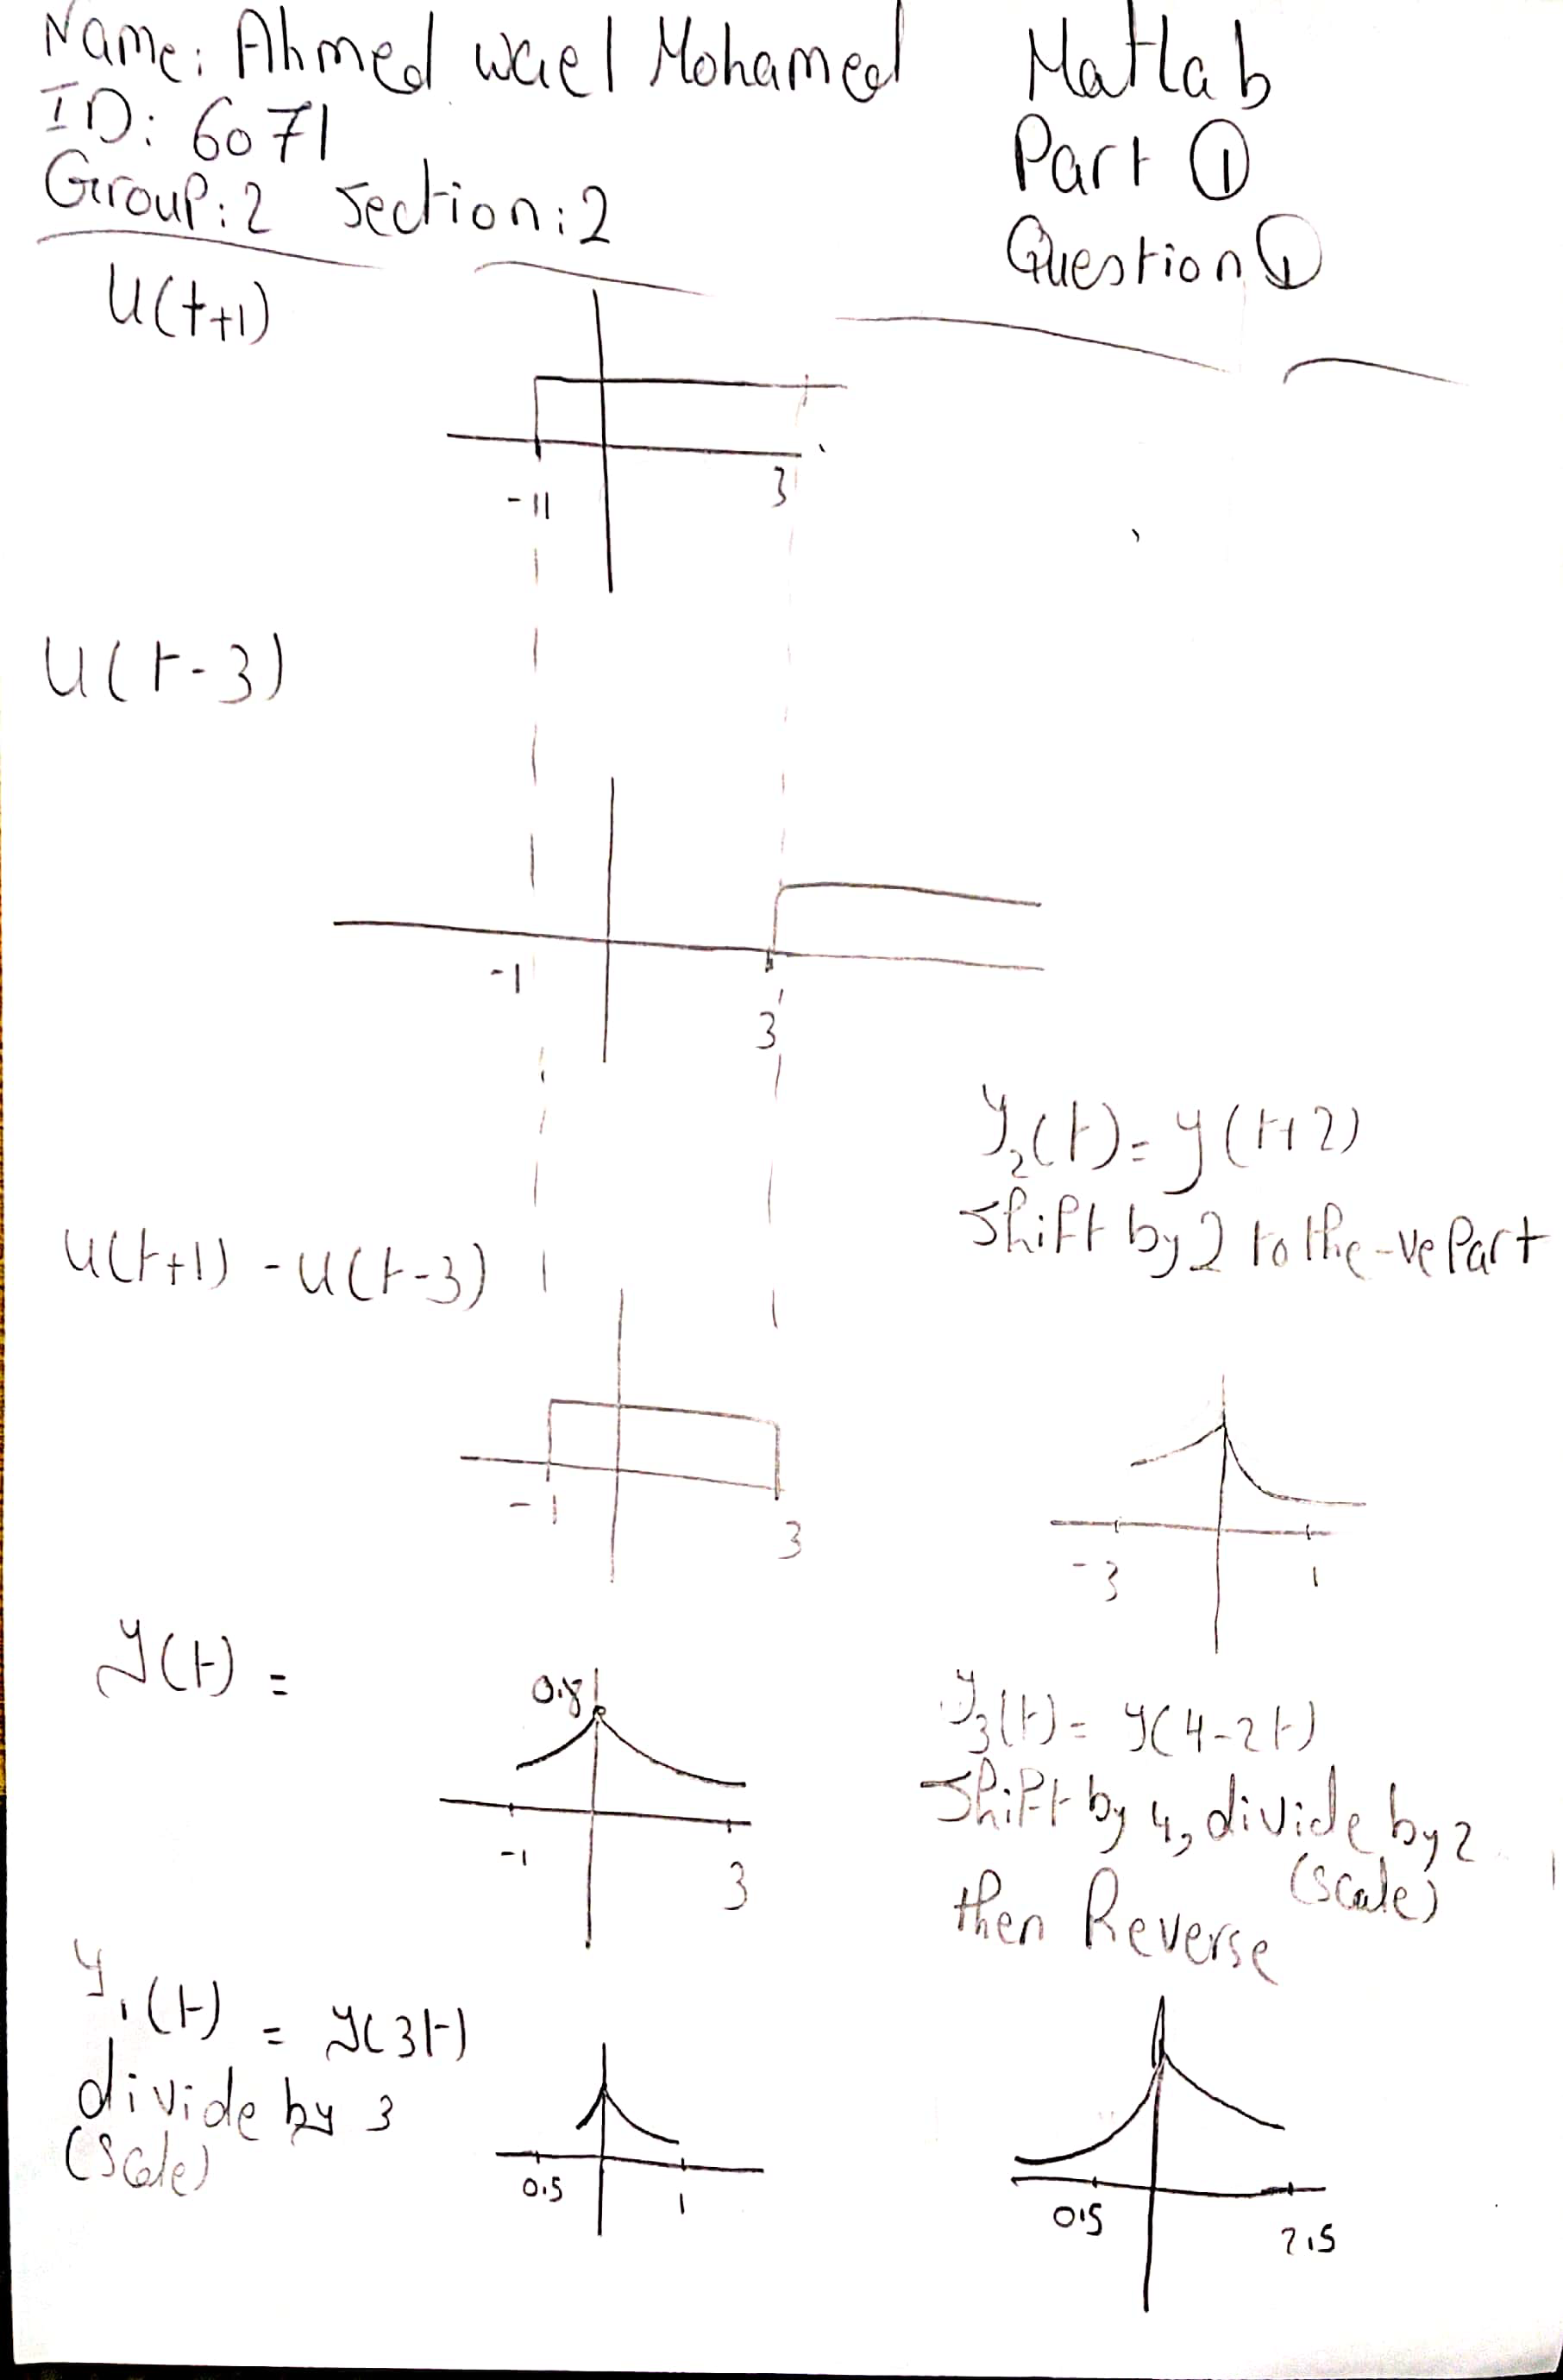 Name: Ahmed wael Mohamed
ID: 6071
Group: 2 section: 2
Matlab
Part ①
Question ①
U(t+1)
-1 3
U(t-3)
-1
3
U(t+1) - U(t-3)
-1 3
y(t) =
0.8
-1 3
y₁(t) = y(3t)
divide by 3
(scale)
0.5 1
y₂(t) = y(t+2)
Shift by 2 to the -ve Part
-3 1
y₃(t) = y(4-2t)
Shift by 4, divide by 2
(scale)
then Reverse
0.5 2.5